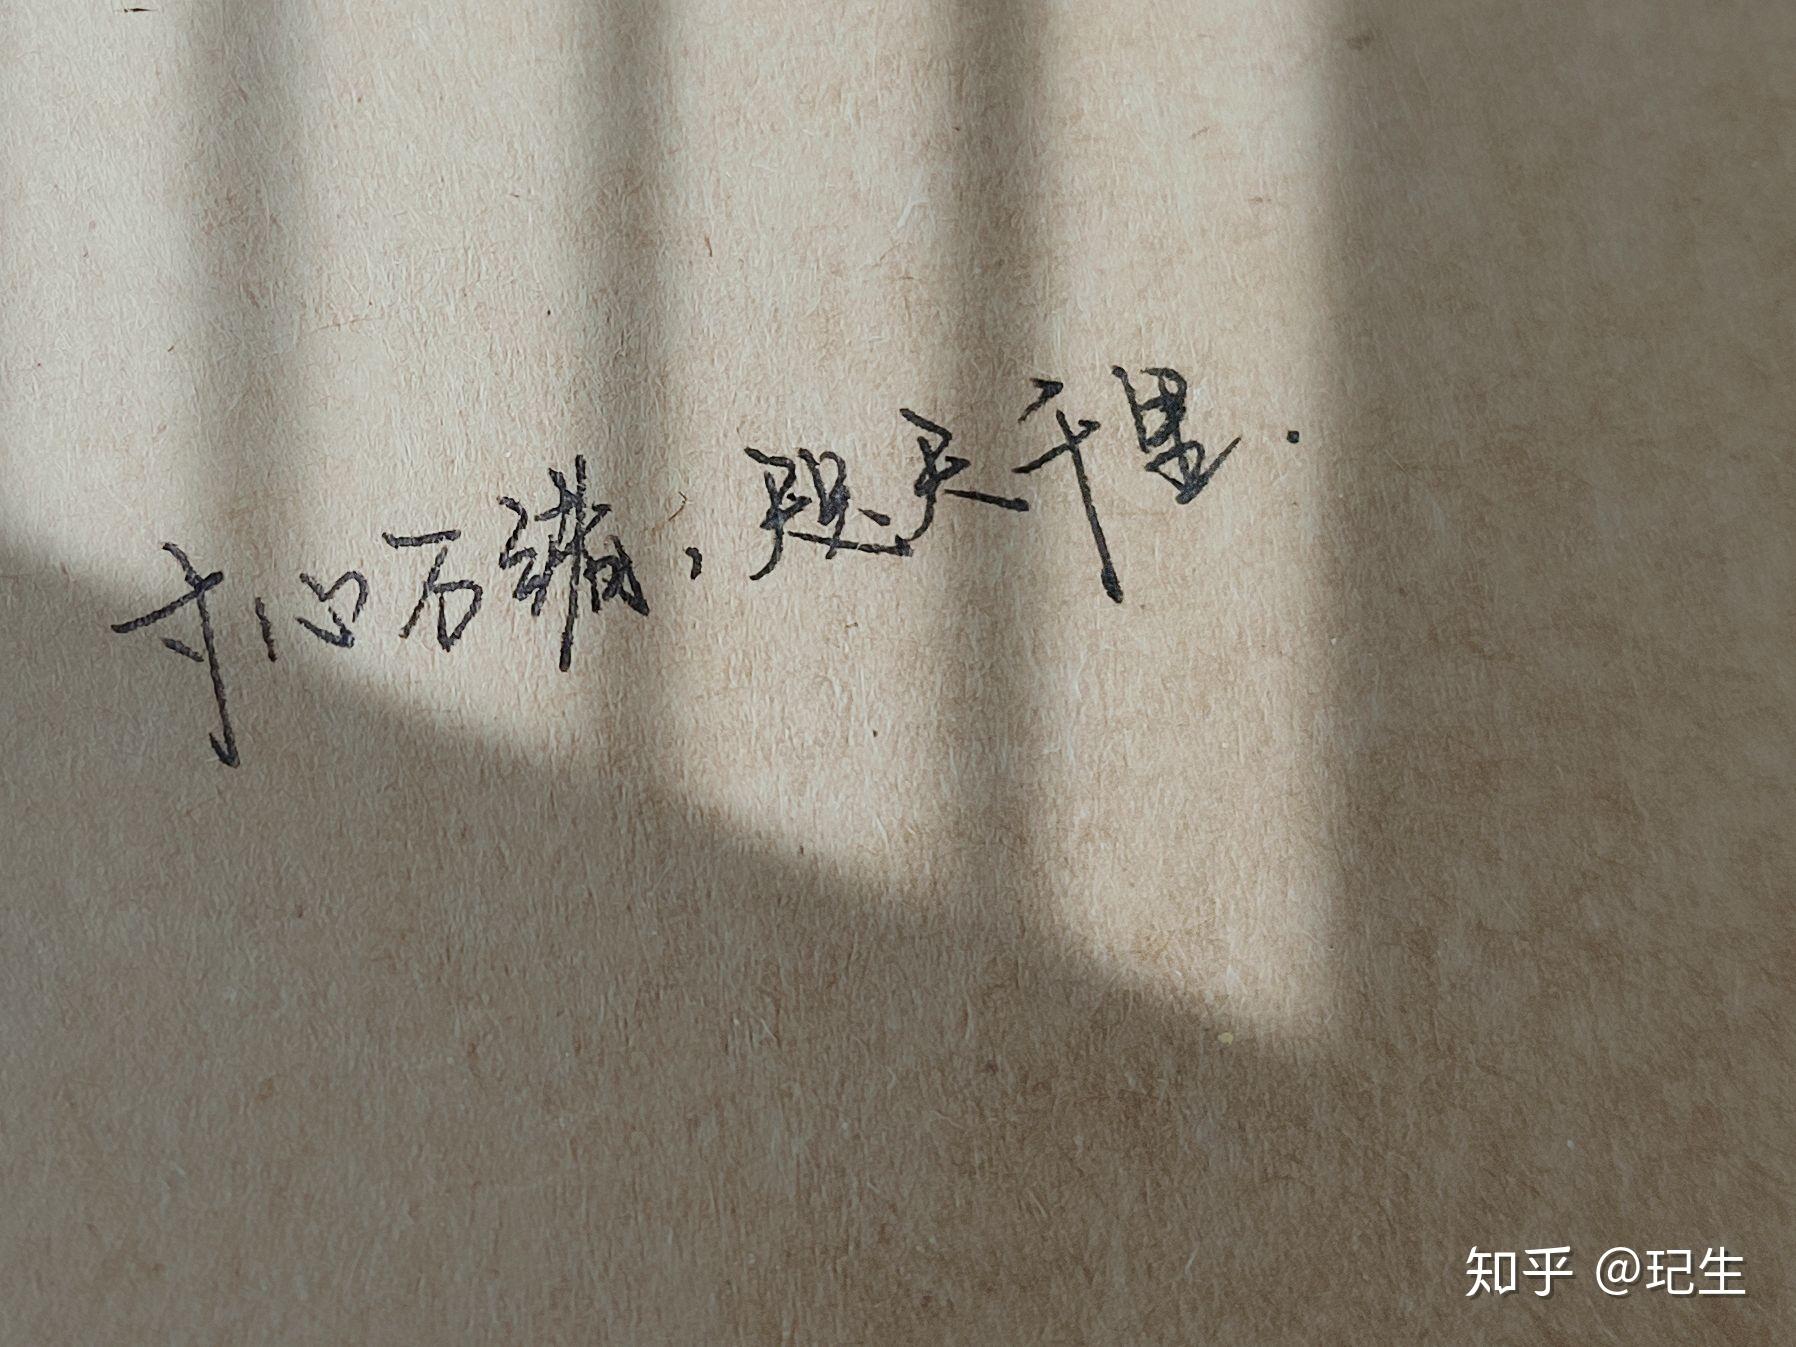 寸心万绪，咫尺千里.
知乎 @玘生